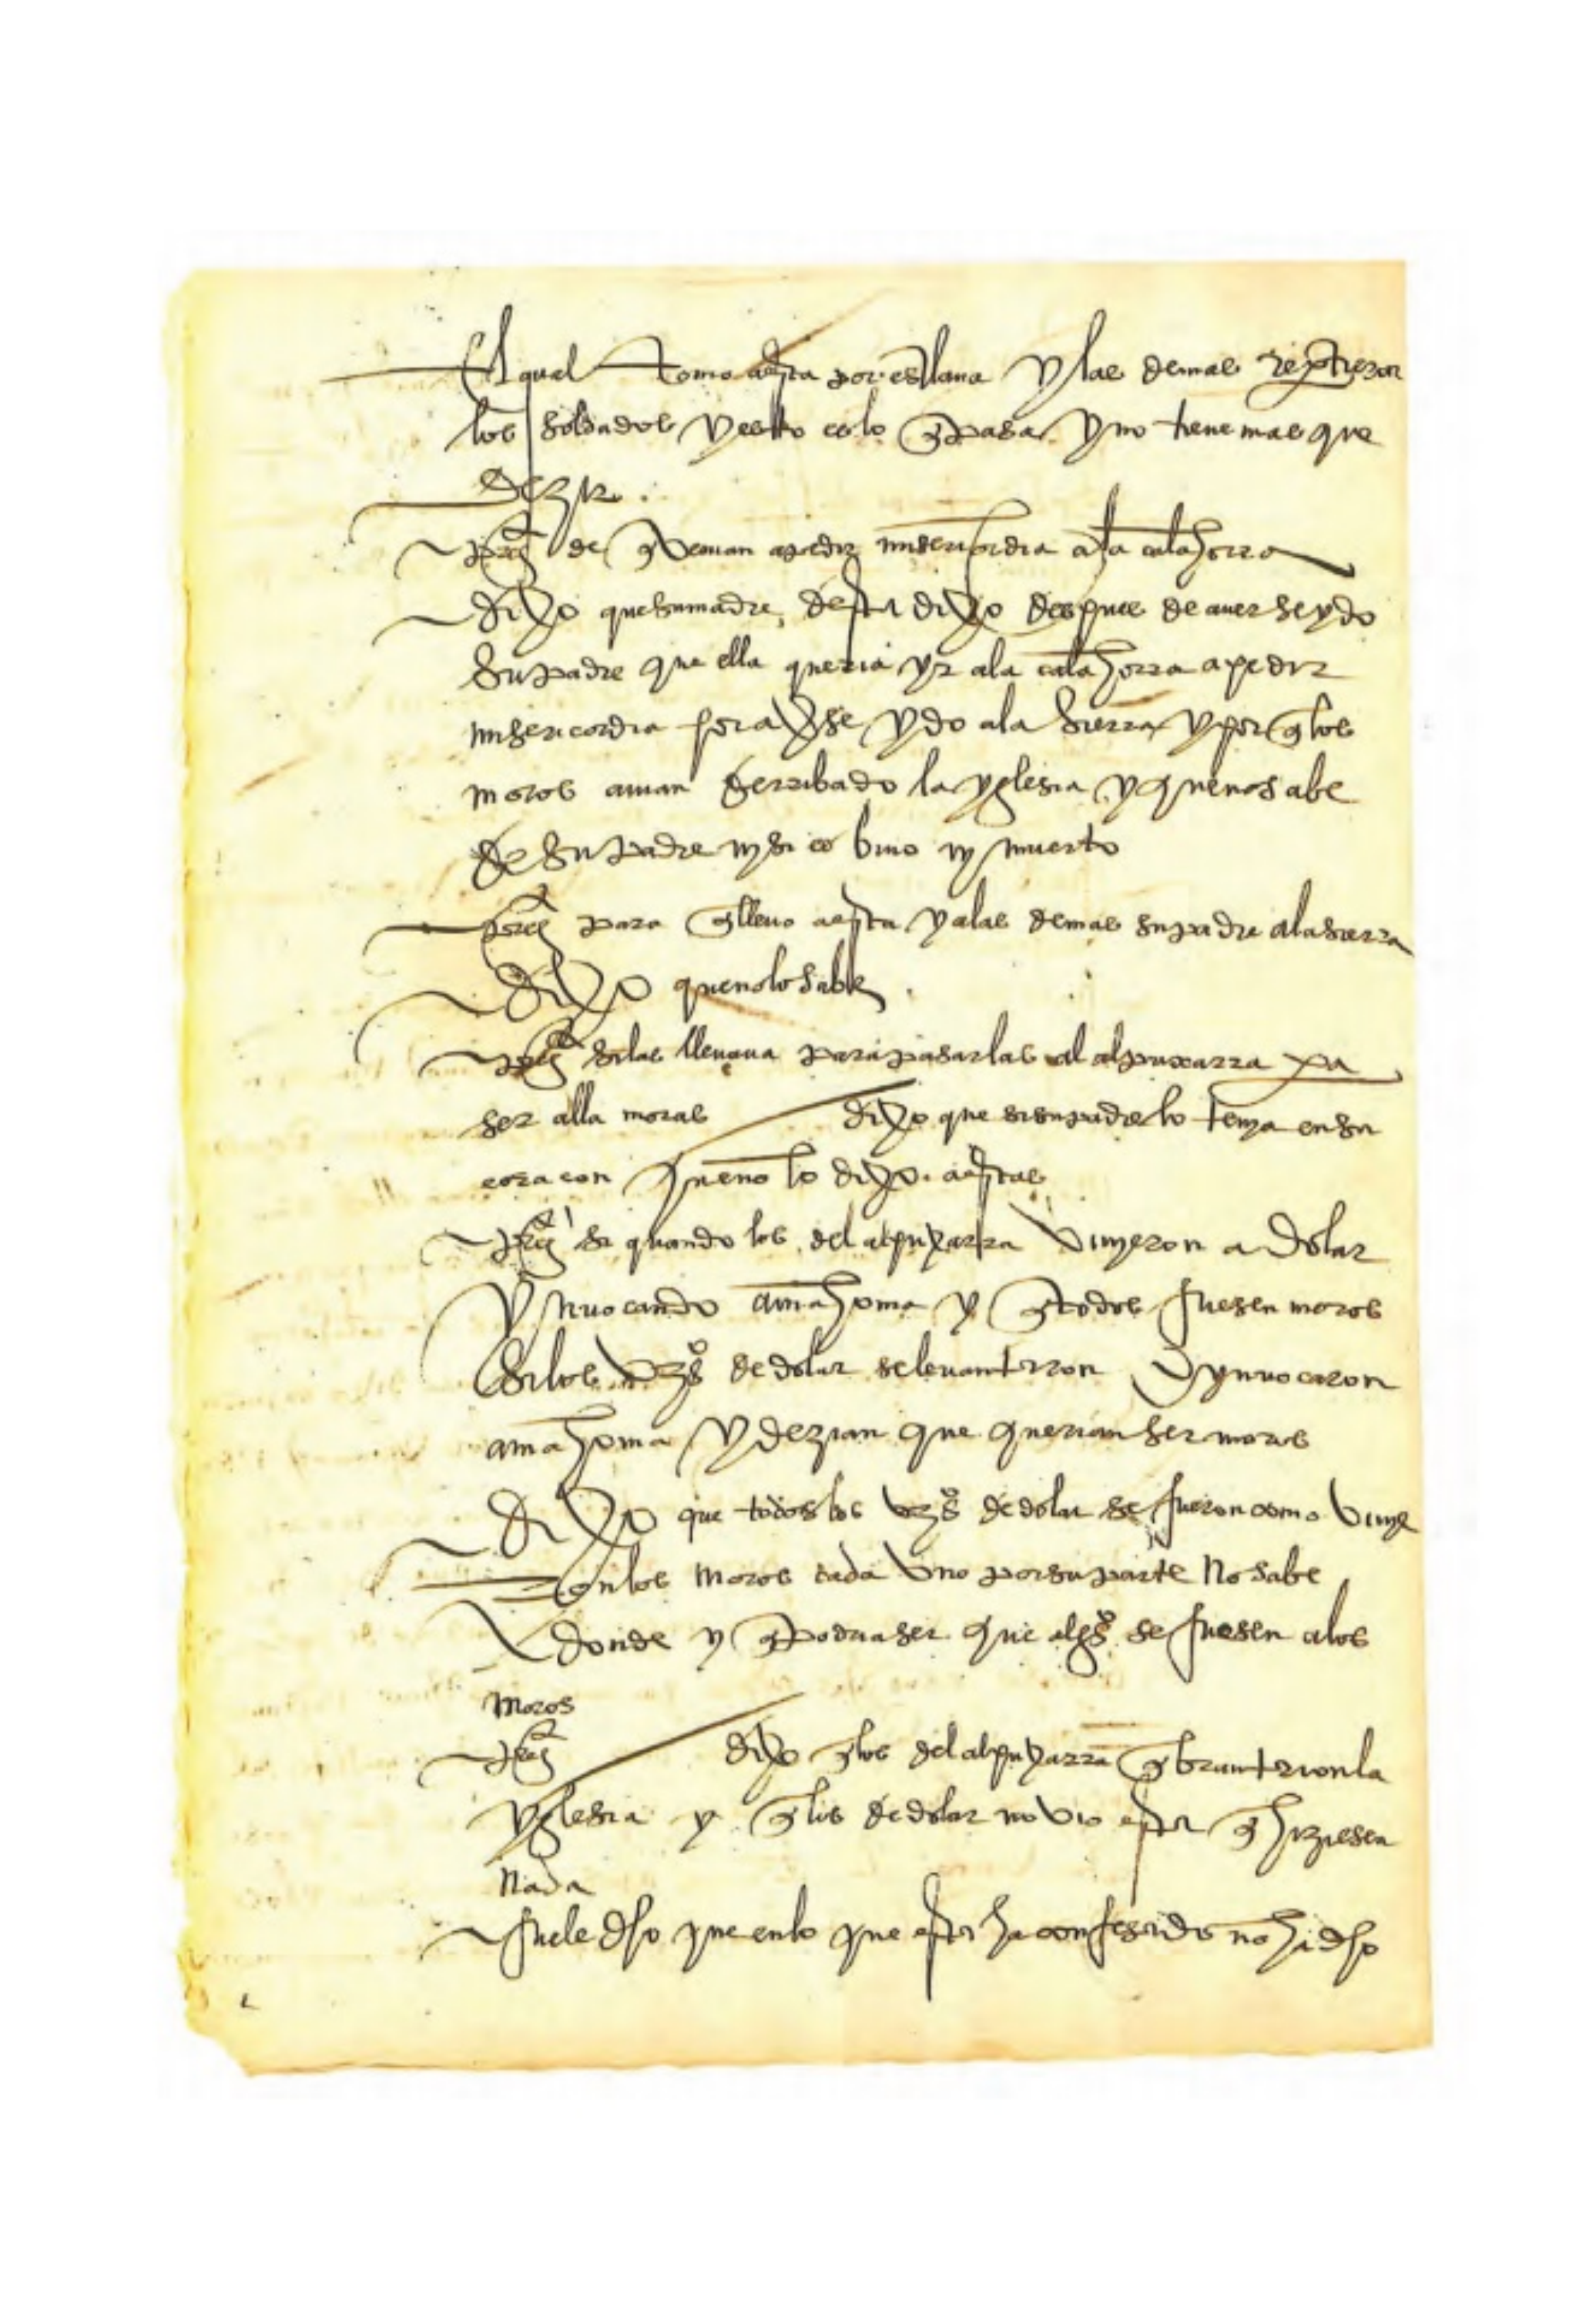 El qual tomo a esta por esclava y las demas repartieron
los soldados y esto es lo q pasa y no tiene mas que
dezir.
preg de q venian a pedir misericordia a la calahorra
dixo que su madre desta dixo despues de aver se ydo
su padre que ella queria yr a la calahorra a pedir
misericordia por averse ydo a la sierra y por q los
moros avian derribado la yglesia y que no sabe
de su padre ny si es bivo ny muerto
preg para q llevo a esta y a las demas su padre a la sierra
dixo que no lo sabe.
preg si las llevava para pasarlas al alpuxarra pa
ser alla moras dixo que si su padre lo tenya en su
coraçon que no lo dixo a estas
preg si quando los del alpuxarra vinyeron a dolar
ynvocando a mahoma y q todos fuesen moros
si los vezos de dolar se levantaron y ynvocaron
a mahoma y dezian que querian ser moros
dixo que todos los vezos de dolar se fueron como vinye
ron los moros cada uno por su parte no sabe
donde y q podria ser que algos se fuesen a los
moros
preg dixo q los del alpuxarra qbrantaron la
yglesia y q los de dolar no vio esta q hiziesen
nada
fuele dho que en lo que esta ha confesado no ha dho